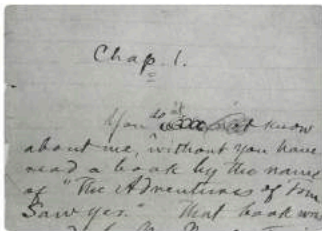 Chap. 1.
You do n't know
about me, without you have
read a book by the name
of "The Adventures of Tom
Sawyer." That book was